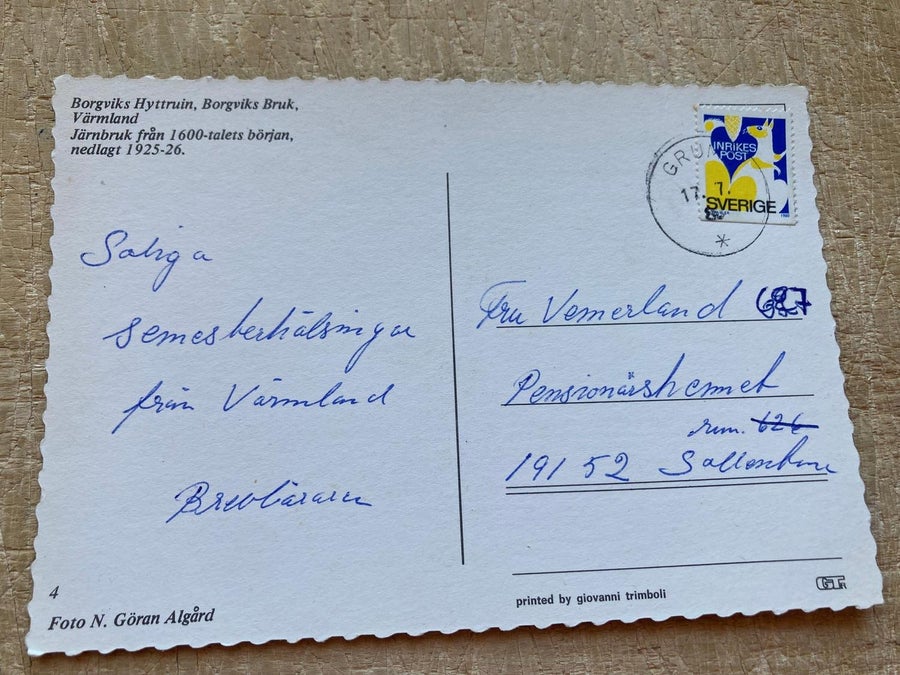 Borgviks Hyttruin, Borgviks Bruk,
Värmland
Järnbruk från 1600-talets början,
nedlagt 1925-26.
INRIKES
POST
SVERIGE
GRU
17. 7.
Soliga
semesterhälsningar
från Värmland
Brevbäraren
Fru Vemerland 627
Pensionärshemmet
rum. 626
191 52 Sollentuna
4
Foto N. Göran Algård
printed by giovanni trimboli